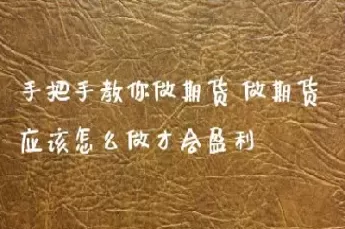 手把手教你做期货 做期货
应该怎么做才会盈利